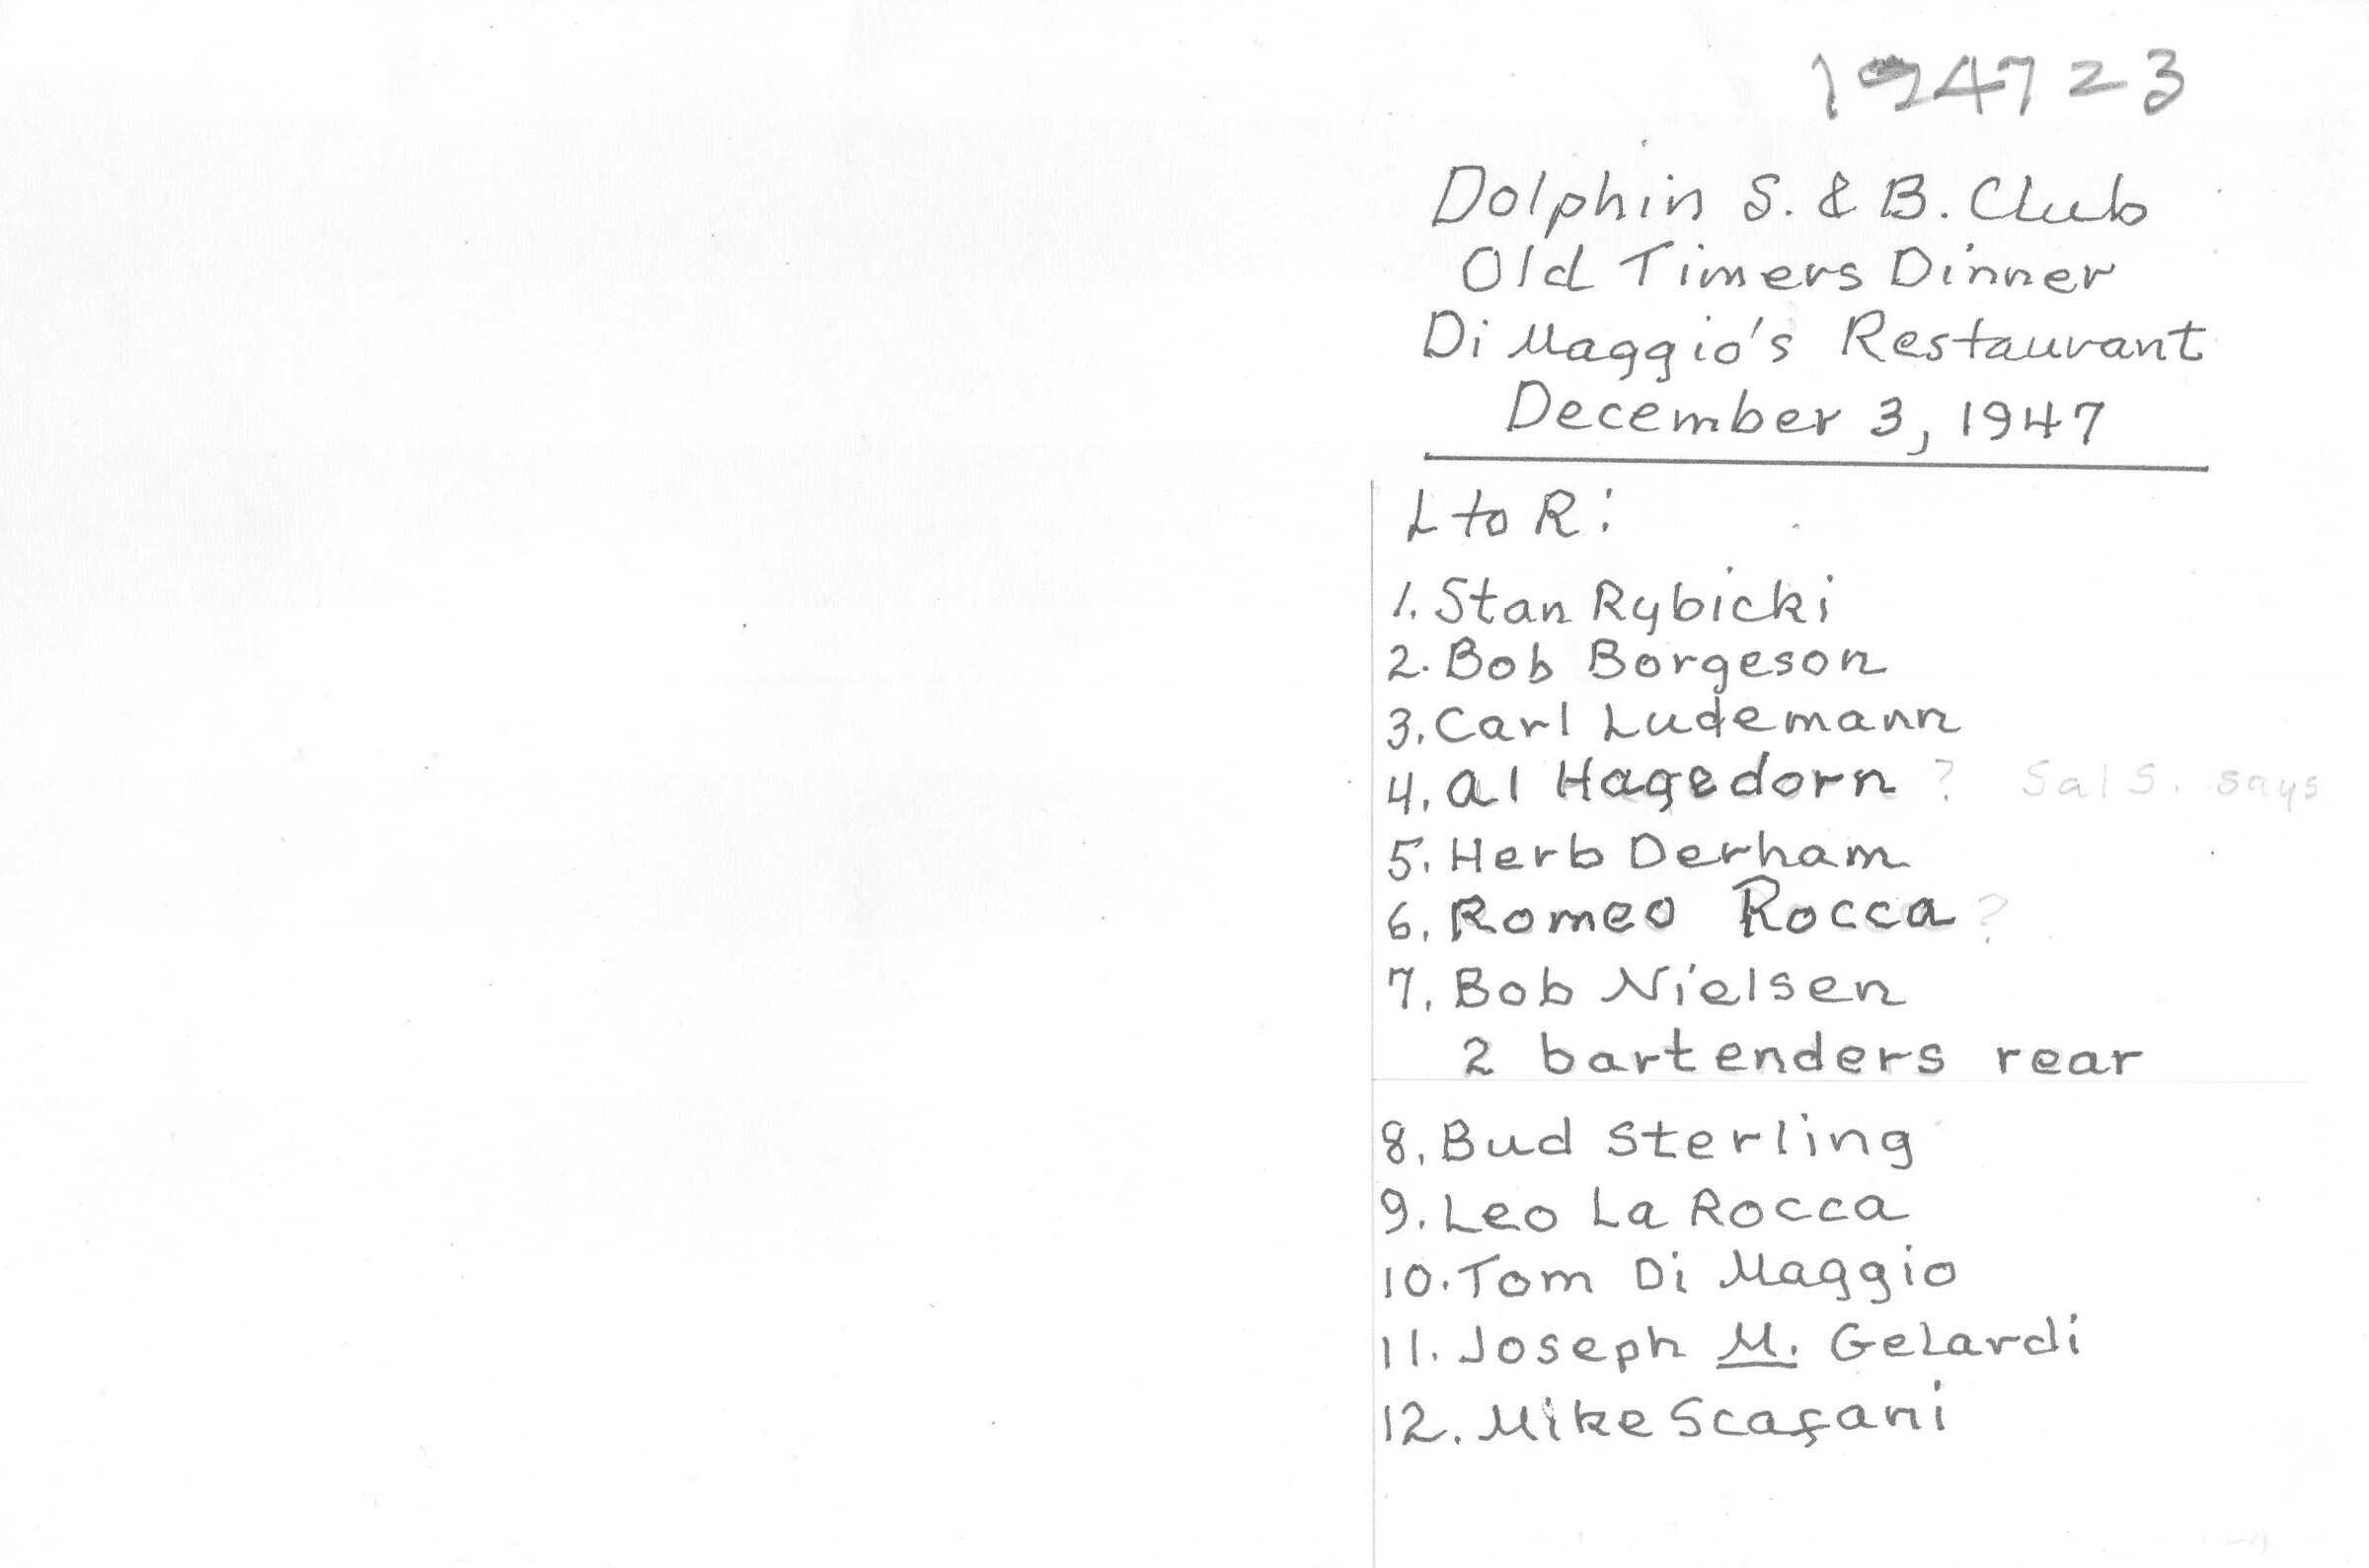 194723
Dolphin S. & B. Club
Old Timers Dinner
Di Maggio's Restaurant
December 3, 1947
L to R:
1. Stan Rybicki
2. Bob Borgeson
3. Carl Ludemann
4. Al Hagedorn ? Sal S. says
5. Herb Derham
6. Romeo Rocca ?
7. Bob Nielsen
2 bartenders rear
8. Bud Sterling
9. Leo La Rocca
10. Tom Di Maggio
11. Joseph M. Gelardi
12. Mike Scafani